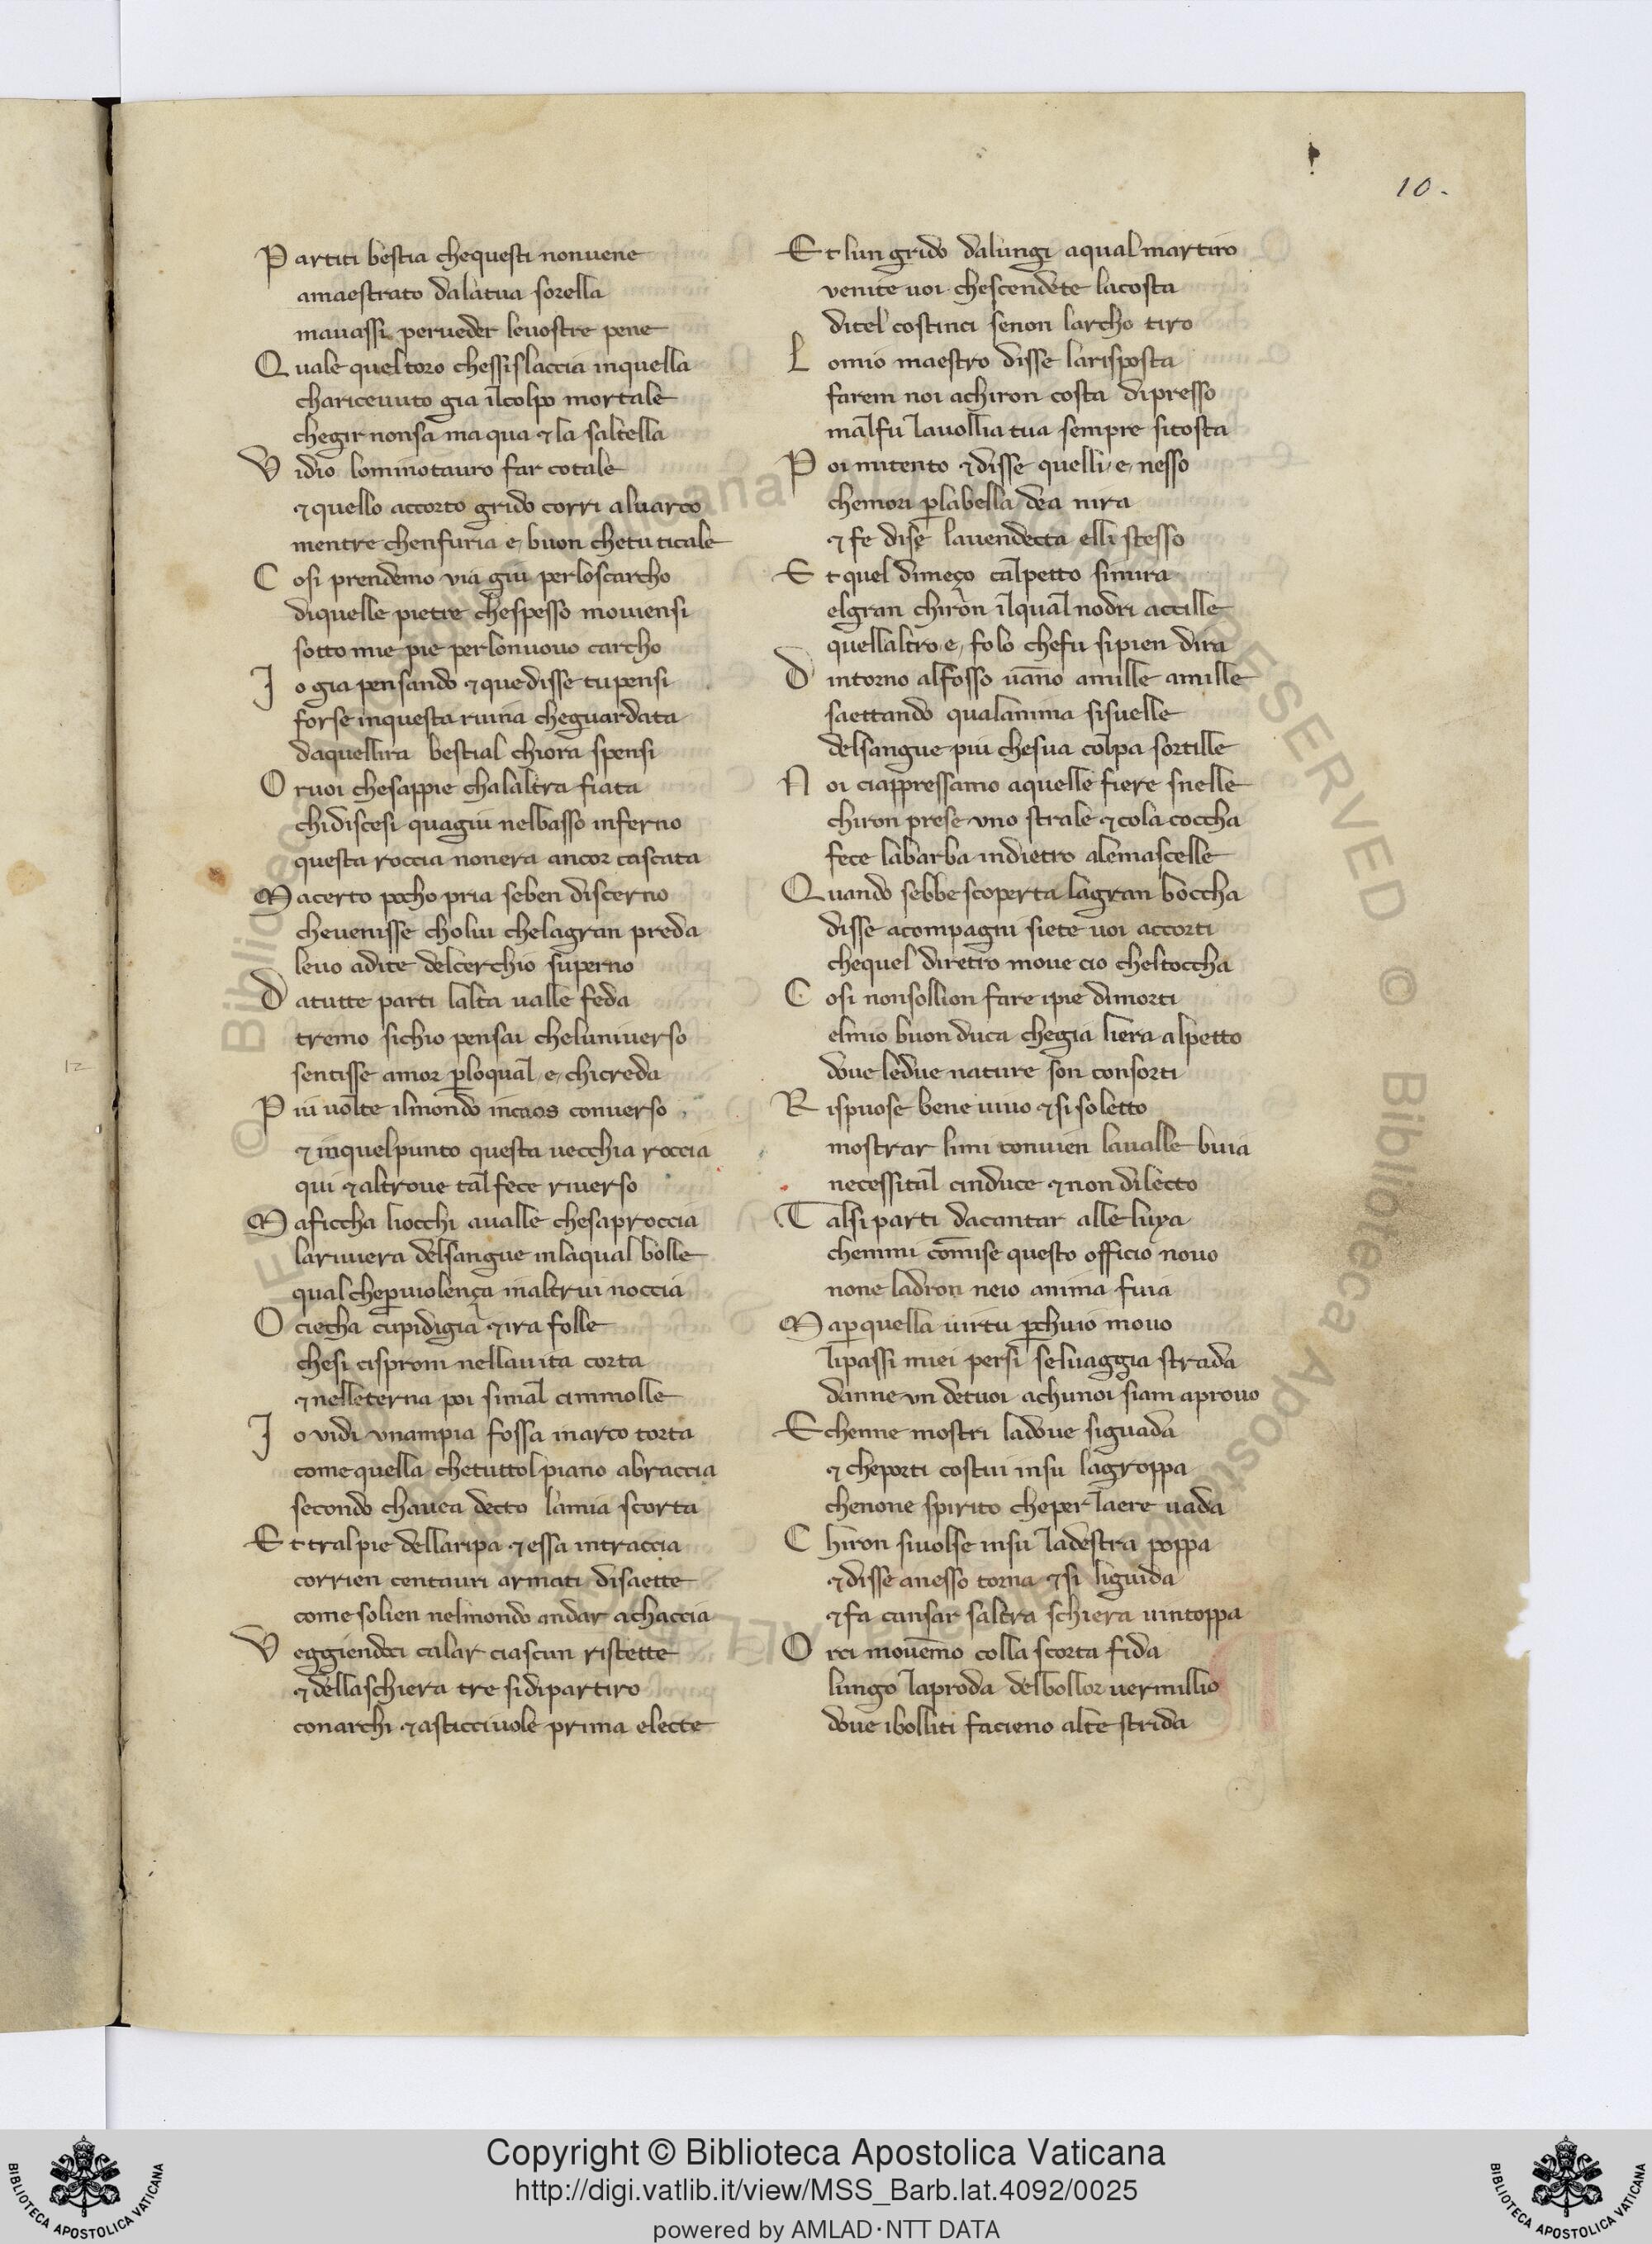 10.
Partiti bestia chequesti nonvene
amaestrato dalatua sorella
mavassi perveder levostre pene
Quale queltoro chessislaccia inquella
charicevuto gia ilcolpo mortale
chegir nonsa ma qua & la saltella
Vidio lominotauro far cotale
& quello accorto grido corri alvarco
mentre chenfuria e buon chetu ticale
Cosi prendemo via giu perloscarcho
diquelle pietre chespesso moviensi
sotto mie pie perlonuovo carcho
Io gia pensando & quedisse tupensi
forse inquesta ruina cheguardata
daquellira bestial chiora spensi
Orvoi chesappie chalaltra fiata
chidiscesi quagiu nelbasso inferno
questa roccia nonera ancor cascata
Macerto pocho pria seben discerno
chevenisse cholui chelagran preda
levo adite delcerchio superno
Datutte parti lalta valle feda
tremo sichio pensai cheluniverso
sentisse amor ploqual e chicreda
Piu volte ilmondo incaos converso
& inquelpunto questa vecchia roccia
qui & altrove tal fece riverso
Maficcha liocchi avalle chesaproccia
lariviera delsangue inlaqual bolle
qual chepviolença inaltrui noccia
O ciecha cupidigia & ira folle
chesi cisproni nellavita corta
& nelleterna poi simal cimmolle
Io vidi vnampia fossa inarco torta
come quella chetuttol piano abraccia
secondo chavea decto lamia scorta
Et tralpie dellaripa & essa intraccia
corrien centauri armati disaette
come solien nelmondo andar achaccia
Veggiendoci calar ciascun ristette
& dellaschiera tre sidipartiro
conarchi & asticciuole prima electe
Et lun grido dalungi aqual martiro
venite voi chescendete lacosta
ditel costinci senon larcho tiro
Lomio maestro disse larisposta
farem noi achiron costa dipresso
malfu lavollia tua sempre sitosta
Poi mitento & disse quelli e nesso
chemori plabella deanira
& fe dise lavendecta elli stesso
Et quel dimeço calpetto simira
elgran chiron ilqual nodri accille
quellaltro e folo chefu sipien dira
Dintorno alfosso vanno amille amille
saettando qualanima sisvelle
delsangue piu chesua colpa sortille
Noi ciappressamo aquelle fiere snelle
chiron prese vno strale & cola coccha
fece labarba indietro alemascelle
Quando sebbe scoperta lagran boccha
disse acompagni siete voi accorti
chequel diretro move cio cheltoccha
Cosi nonsollion fare ipie dimorti
elmio buon duca chegia liera alpetto
dove ledue nature son consorti
Rispuose bene vivo & si soletto
mostrar limi convien lavalle buia
necessital cinduce & non dilecto
Talsi parti dacantar alleluya
chemmi comise questo officio novo
none ladron neio anima fuia
Mapquella virtu pchuio movo
lipassi miei persi selvaggia strada
danne vn detuoi achunoi siam aprovo
Echenne mostri ladove siguada
& cheporti costui insu lagroppa
chenone spirito cheper laere vada
Chiron sivolse insu ladestra poppa
& disse anesso torna & si liguida
& fa cansar saltra schiera vintoppa
Orci movemo colla scorta fida
lungo laproda delbollor vermillio
dove ibolliti facieno alte strida
12
© Biblioteca Apostolica Vaticana
ALL RIGHTS RESERVED
Copyright © Biblioteca Apostolica Vaticana
http://digi.vatlib.it/view/MSS_Barb.lat.4092/0025
powered by AMLAD·NTT DATA
BIBLIOTECA APOSTOLICA VATICANA
BIBLIOTECA APOSTOLICA VATICANA